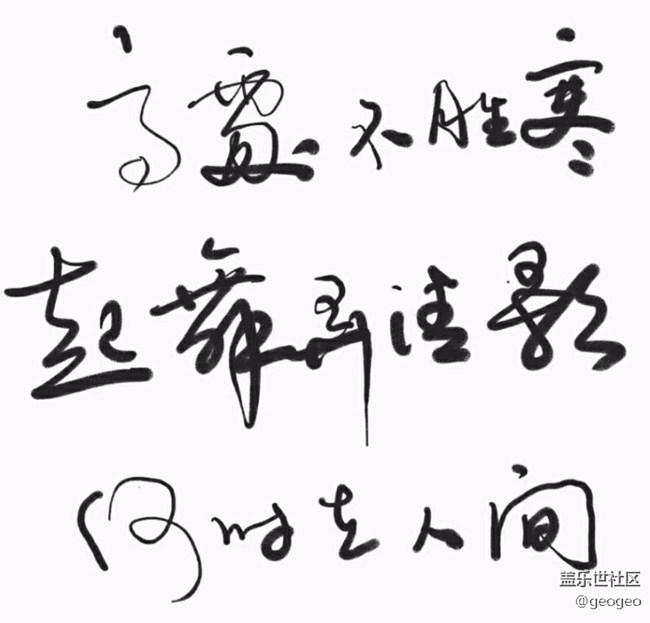 高處不胜寒
起舞弄清影
何时在人间
盖乐世社区
@geogeo